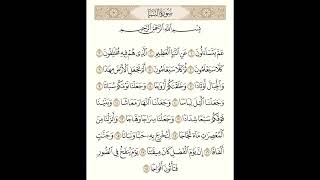 سُورَةُ النَّبَإِ
بِسْمِ اللَّهِ الرَّحْمَٰنِ الرَّحِيمِ
عَمَّ يَتَسَآءَلُونَ ١ عَنِ ٱلنَّبَإِ ٱلْعَظِيمِ ٢ ٱلَّذِى هُمْ فِيهِ مُخْتَلِفُونَ ٣
كَلَّا سَيَعْلَمُونَ ٤ ثُمَّ كَلَّا سَيَعْلَمُونَ ٥ أَلَمْ نَجْعَلِ ٱلْأَرْضَ مِهَٰدًا ٦
وَٱلْجِبَالَ أَوْتَادًا ٧ وَخَلَقْنَٰكُمْ أَزْوَٰجًا ٨ وَجَعَلْنَا نَوْمَكُمْ سُبَاتًا ٩
وَجَعَلْنَا ٱلَّيْلَ لِبَاسًا ١٠ وَجَعَلْنَا ٱلنَّهَارَ مَعَاشًا ١١ وَبَنَيْنَا
فَوْقَكُمْ سَبْعًا شِدَادًا ١٢ وَجَعَلْنَا سِرَاجًا وَهَّاجًا ١٣ وَأَنزَلْنَا مِنَ
ٱلْمُعْصِرَٰتِ مَآءً ثَجَّاجًا ١٤ لِّنُخْرِجَ بِهِۦ حَبًّا وَنَبَاتًا ١٥ وَجَنَّٰتٍ
أَلْفَافًا ١٦ إِنَّ يَوْمَ ٱلْفَصْلِ كَانَ مِيقَٰتًا ١٧ يَوْمَ يُنفَخُ فِى ٱلصُّورِ
فَتَأْتُونَ أَفْوَاجًا ١٨